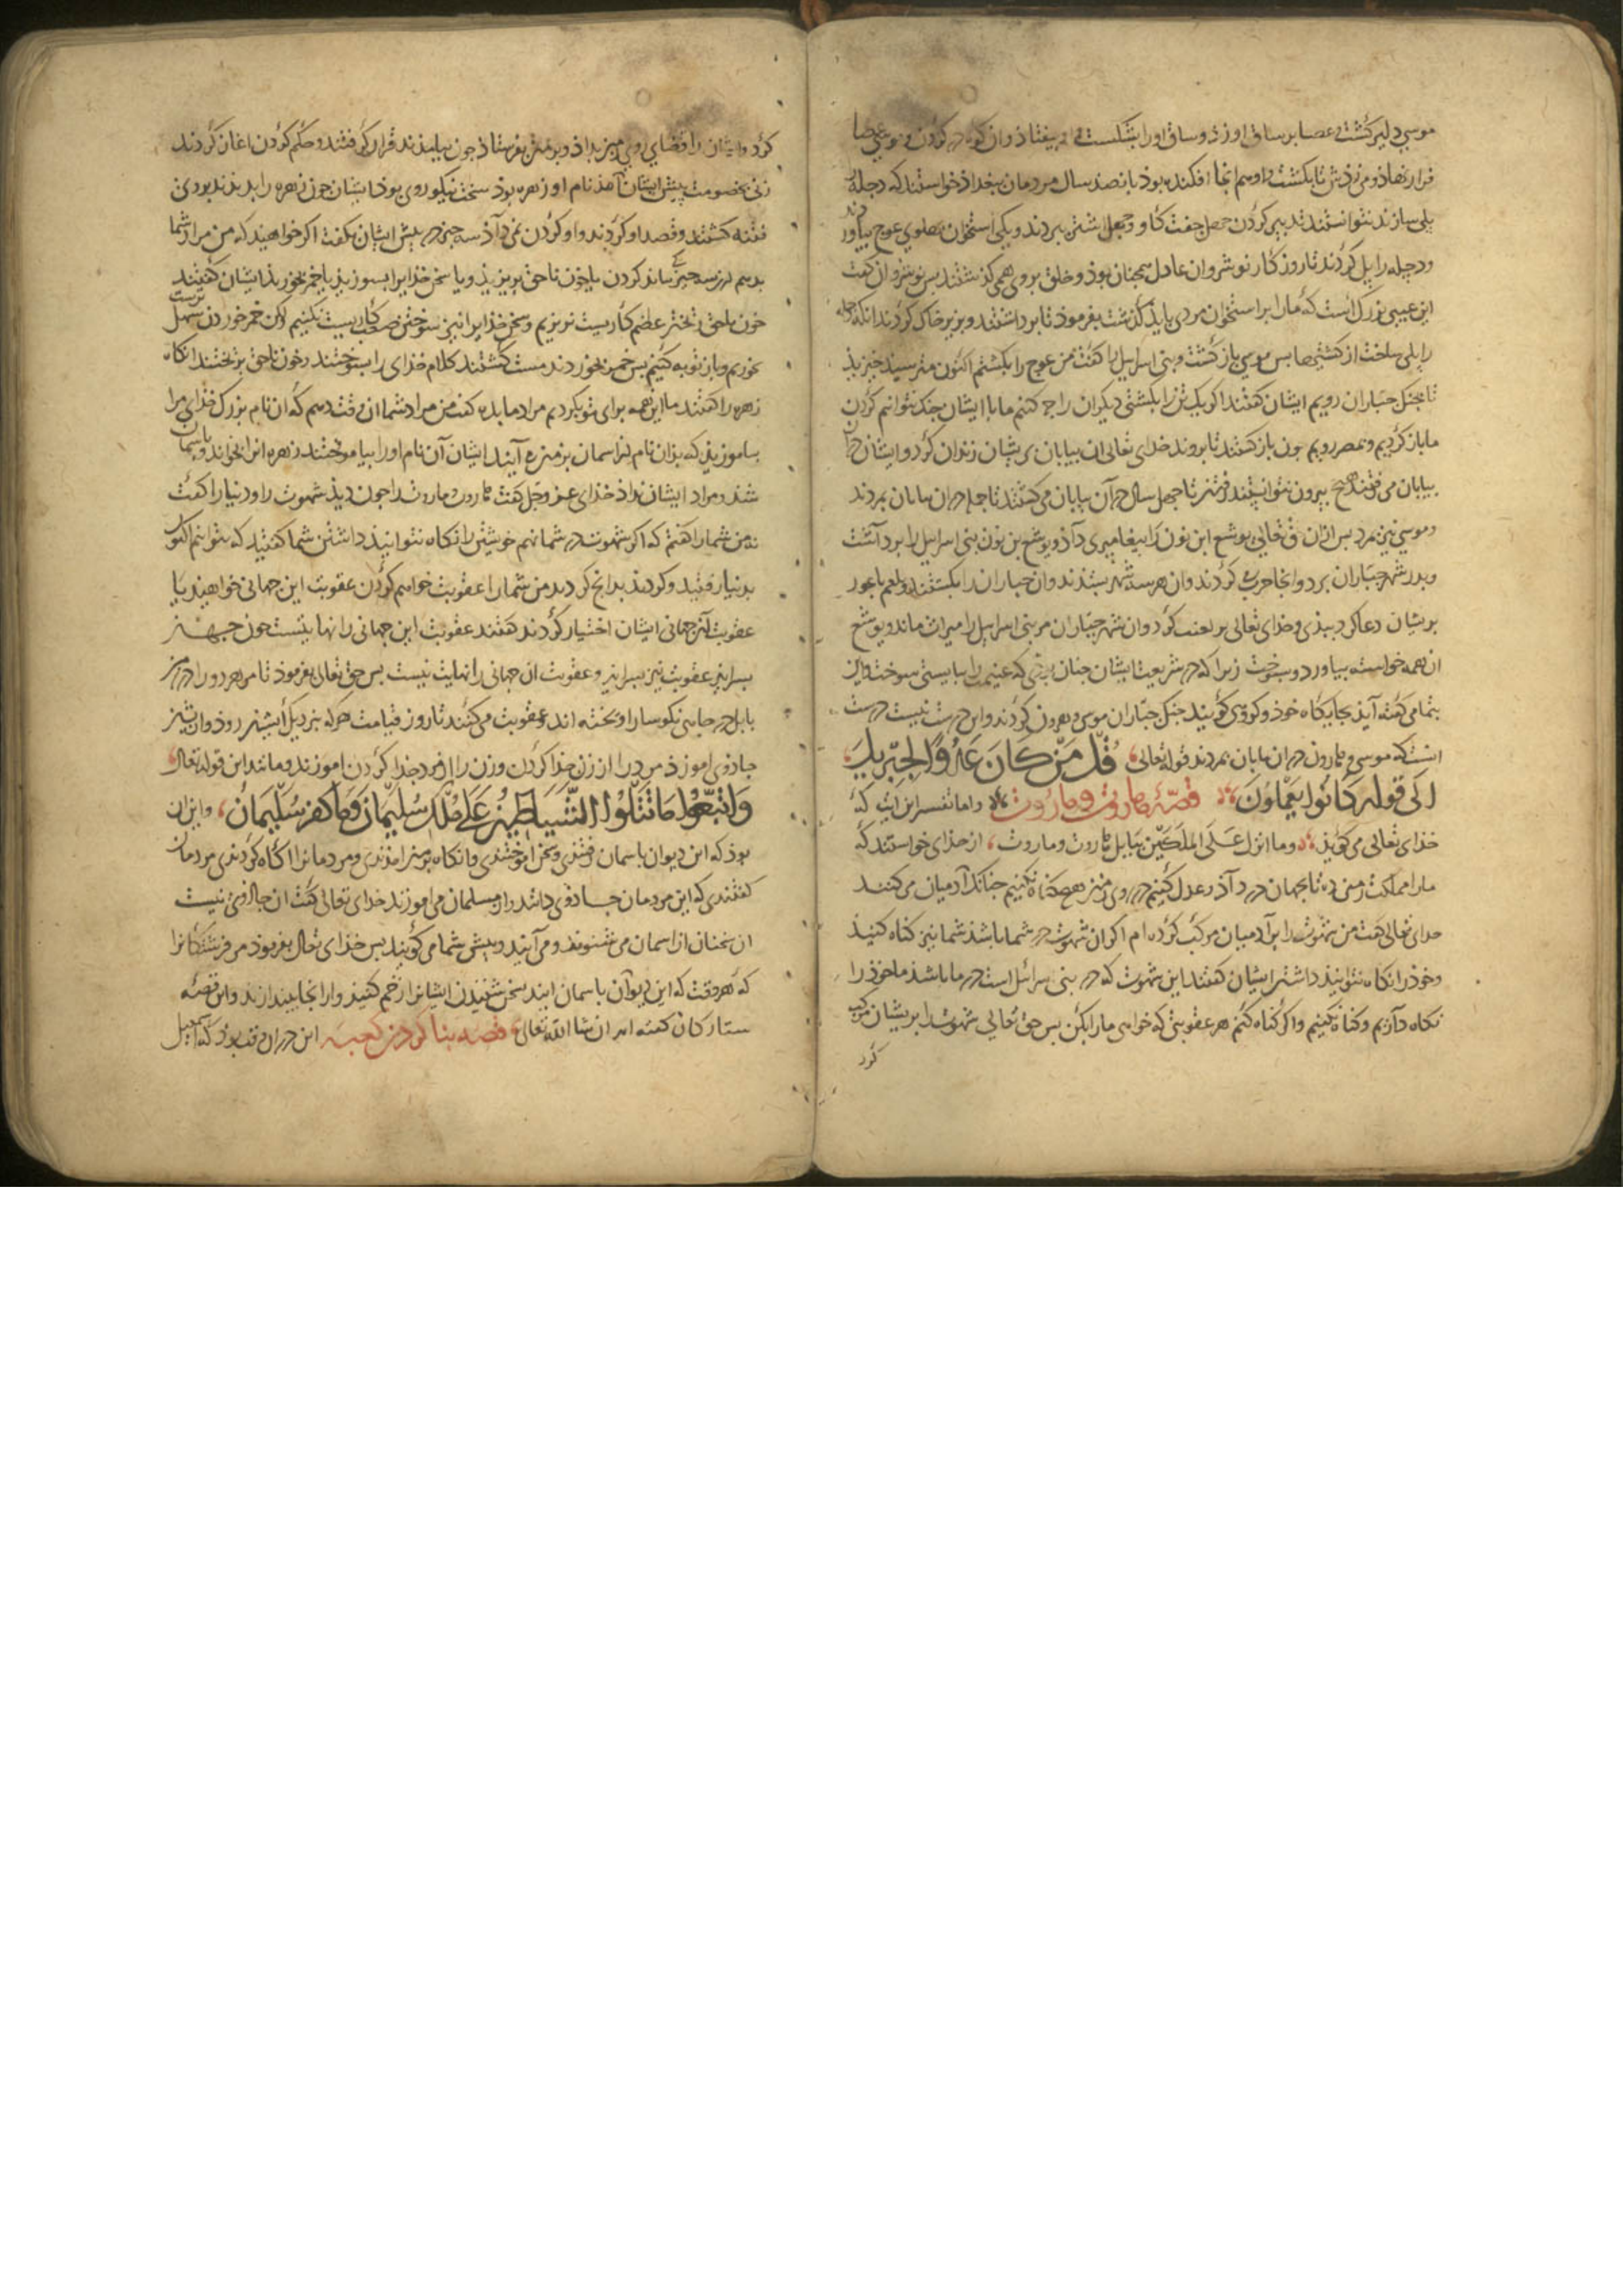 موسی دلیر کشت عصا بر ساق او زد و ساق او را بشکست و بیفتاذ وان کوه در کردن و موسی عصا
فرا نهاذ و می زدش تا بکشت و او هم انجا افکنده بوذ بانصد سال مردمان بغداذ خواستند که دجله را
بلی سازند نتوانستند تدبیر کردن چهل جفت کاو و چهل اشتر ببردند و یکی استخوان بهلوی عوج بیاوردند
و دجله را بل کردند تا روزکار نوشروان عادل همجنان بوذ و خلق بر وی همی کذشتند بس نوشروان کفت
این عیبی بزرک است که ما را بر استخوان مردی باید کذشت بفرموذ تا برداشتند و بزیر خاک کردند انکه دجله
را بلی ساخت از کشتیها بس موسی باز کشت و بنی اسراییل را کفت من عوج را بکشتم اکنون مترسید خیزیذ
تا بجنک جباران رویم ایشان کفتند اکر یک تن را بکشتی دیکران را چه کنیم ما با ایشان جنک نتوانیم کردن
ما باز کردیم و بمصر رویم جون باز کشتند تا بروند خدای تعالی ان بیابان بریشان زندان کرد و ایشان دران
بیابان می رفتند هیچ بیرون نتوانستند رفتن تا جهل سال در آن بیابان می کشتند تا جمله در ان بیابان بمردند
و موسی نیز بمرد بس از ان حق تعالی یوشع ابن نون را بیغامبری داذ و یوشع بن نون بنی اسراییل را برداشت
و بدر شهر جباران برد و انجا حرب کردند وان هر سه شهر بستدند وان جباران را بکشتند و بلعم باعور
بریشان دعا کرد ببدی و خدای تعالی بر لعنت کرد وان شهر جباران مر بنی اسراییل را میراث ماند و یوشع
ان همه خواسته بیاورد و بسوخت زیرا که در شریعت ایشان جنان بوذی که غنیمت را ببایستی سوخت و این
بتمامی کفته آید بجایکاه خوذ و کروهی کویند جنک جباران موسی و هرون کردند و این درست نیست درست
انست که موسی و هارون در ان بیابان بمردند قوله تعالی قُلْ مَنْ كَانَ عَدُوًّا لِجِبْرِيلَ
الی قوله كَانُوا يَعْلَمُونَ قصّهٔ هاروت و ماروت و اما تفسیر این آیت که
خدای تعالی می کویذ وما انزل عَلَى الملكَيْن ببابل هاروت وماروت از خدای خواستند که
ما را مملکت زمین ده تا بجهان در داذ و عدل کنیم در روی زمین هیچ کناه نکنیم جنانک آدمیان می کنند
خدای تعالی کفت من شهوت را بر آدمیان مرکب کرده ام اکر ان شهوت در شما باشذ شما نیز کناه کنیذ
و خوذ را نکاه نتوانیذ داشتن ایشان کفتند این شهوت که در بنی اسرائیل است در ما باشذ ما خوذ را
نکاه داریم و کناه نکنیم و اکر کناه کنیم هر عقوبتی که خواهی ما را بکن بس حق تعالی شهوت را بریشان مرکب
کرد
کرد و ایشان را قضای روی زمین بداذ و بزمین بفرستاذ جون بیامدند قرار کرفتند و حکم کردن اغاز کردند
زنی بخصومت بیش ایشان آمد نام او زهره بوذ سخت نیکو روی بوذ ایشان جون زهره را بدیدند بر وی
فتنه کشتند و قصد او کردند و او کردن نمی داذ سه چیز در بیش ایشان بکفت اکر خواهید که من مراد شما
بدهم ازین سه چیز یکی بباید کردن یا خون ناحق بریزیذ و یا سخن خدایرا بسوزیذ یا خمر بخوریذ ایشان کفتند
خون ناحق ریختن عظیم کاریست نریزیم و سخن خدایرا نیز سوختن صعب کاریست نکنیم لکن خمر خوردن سهل ترست
بخوریم و باز توبه کنیم بس خمر بخوردند مست کشتند کلام خدای را بسوختند و خون ناحق بریختند انکاه
زهره را کفتند ما این همه برای تو بکردیم مراد ما بده کفت من مراد شما ان وقت دهم که ان نام بزرک خدای مرا
بیاموزیذ که بذان نام از اسمان بزمین می آیند ایشان آن نام او را بیاموختند زهره انرا بخواند و باسمان
شد و مراد ایشان نداذ خدای عز و جل کفت هاروت و ماروت را جون دیذ شهوت را و دنیا را کفت
نه من شما را کفتم که اکر شهوت در شما نهم خویشتن را نکاه نتوانیذ داشتن شما کفتید که بتوانیم اکنون
بدنیا رفتید و کردند بدانج کردید من شما را عقوبت خواهم کردن عقوبت این جهانی خواهید یا
عقوبت آن جهانی ایشان اختیار کردند کفتند عقوبت این جهانی را نهایتست جون جهان
بسر آید عقوبت نیز بسر آید و عقوبت ان جهانی را نهایت نیست بس حق تعالی بفرموذ تا مر هر دو را در زمین
بابل در جاهی نکوسار اویخته اند و عقوبت می کنند تا روز قیامت هر که بنزدیک ایشان روذ وان نیز
جاذوی اموزذ مرد را از زن جذا کردن و زن را از مرد جذا کردن اموزند و مانند این قوله تعالی
وَاتَّبَعُوا مَا تَتْلُوا الشَّيَاطِينُ عَلَى مُلْكِ سُلَيْمَانَ وَمَا كَفَرَ سُلَيْمَانُ و این ان
بوذ که این دیوان باسمان رفتندی و سخن اموختندی و انکاه بزمین امدندی و مردمانرا اکاه کردندی مردمان
کفتندی که این مردمان جاذوی دانند و از مسلمان می اموزند خدای تعالی کفت ان جاذوی نیست
ان سخنان از اسمان می شنوند و می آیند و بیش شما می کویند بس خذای تعالی بفرموذ مر فرشتکانرا
که هر وقت که این دیوان باسمان ایند سخن شنیدن ایشانرا زخم کنیذ و از انجا بیندازید و این قصّه
ستارکان کفته امد ان شا الله تعالی قصه بنا کردن کعبه این در ان وقت بوذ که اسمعیل